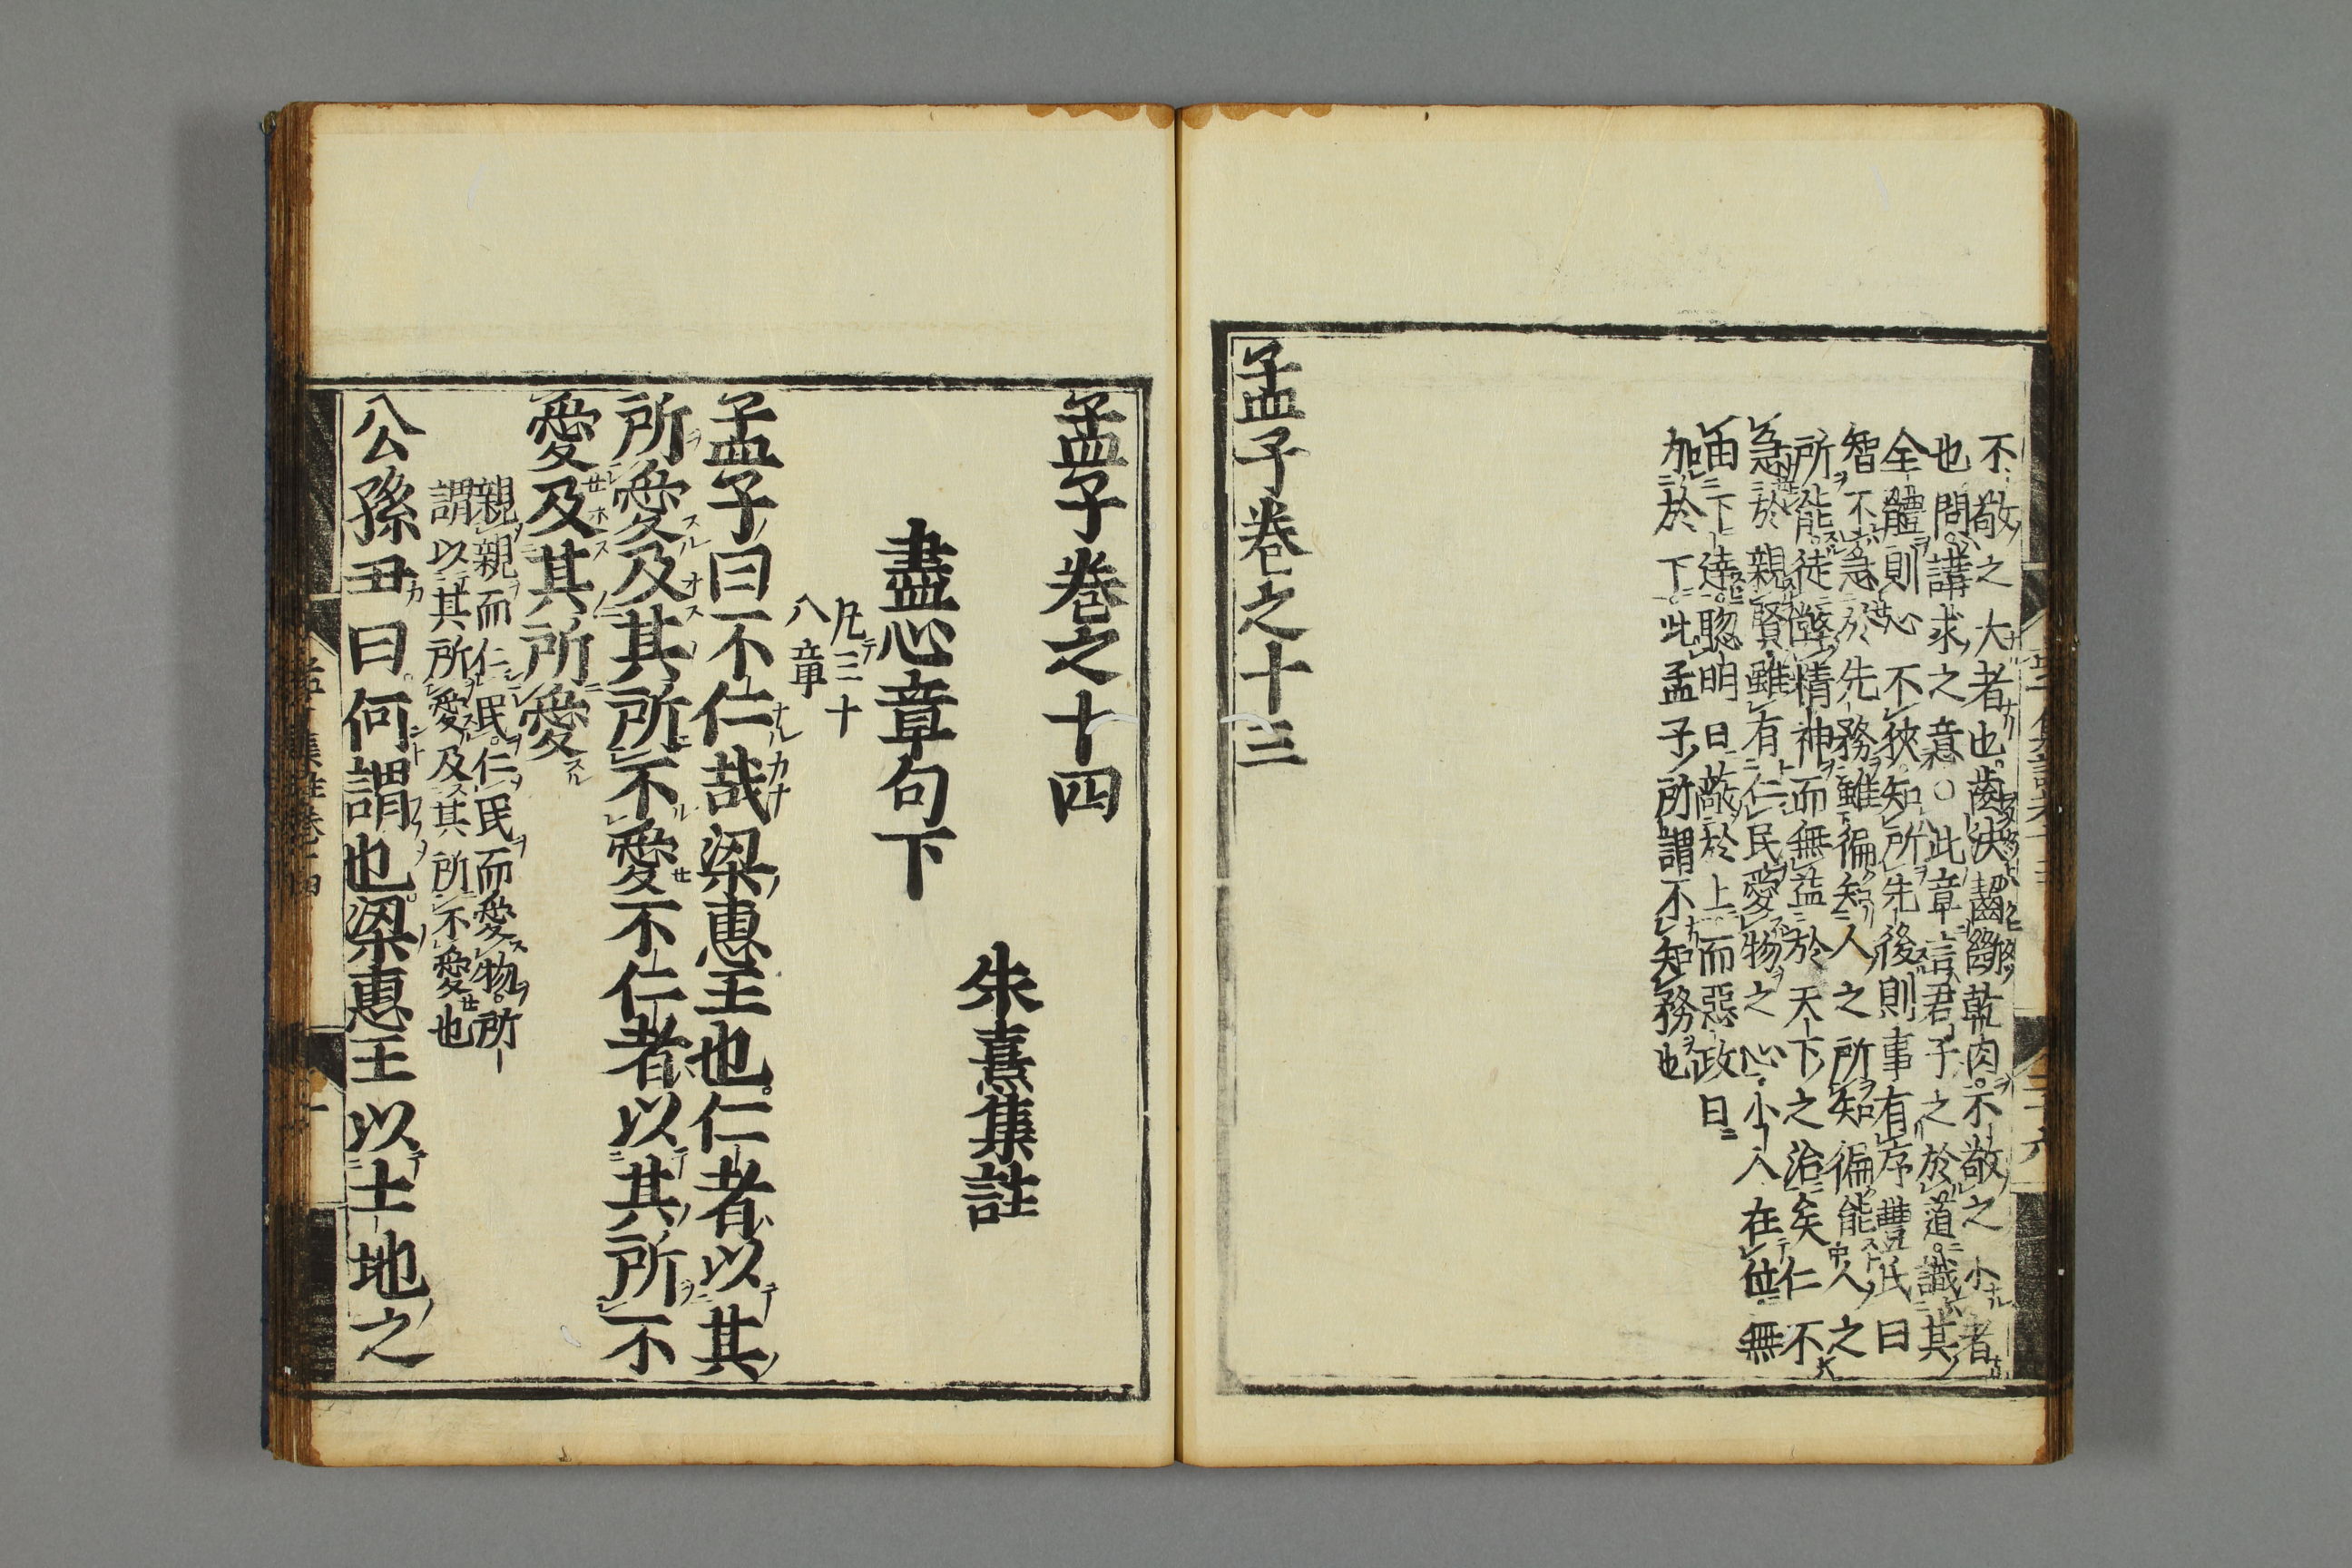 不敬之大者也齒決齧斷乾肉不敬之小者
也問講求之意○此章言君子之於道識其
全體則心不狹知所先後則事有序豐氏曰
智不急於先務雖徧知人之所知徧能人之
所能徒弊精神而無益於天下之治矣仁不
急於親賢雖有仁民愛物之心小人在位無
由下達聡明日蔽於上而惡政日
加於下此孟子所謂不知務也
孟子卷之十三
孟子卷之十四
朱熹集註
盡心章句下
凡三十
八章
孟子曰不仁哉梁惠王也仁者以其
所愛及其所不愛不仁者以其所不
愛及其所愛
親親而仁民仁民而愛物所
謂以其所愛及其所不愛也
公孫丑曰何謂也梁惠王以土地之